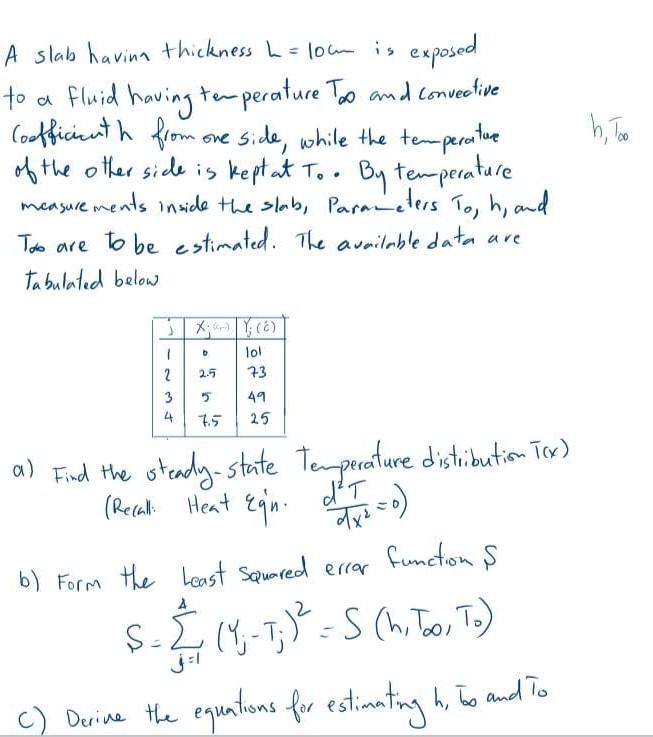 A slab havinn thickness L = 10cm is exposed
to a fluid having temperature T∞ and convective
Coefficient h from one side, while the temperature
h, T∞
of the other side is kept at T₀. By temperature
measurements inside the slab, Parameters T₀, h, and
T∞ are to be estimated. The available data are
tabulated below
j Xj (cm) Yj (c)
1 0 101
2 2.5 73
3 5 49
4 7.5 25
a) Find the steady-state Temperature distribution T(x)
(Recall: Heat Eq'n. d²T/dx² = 0)
b) Form the Least Squared error function S
S = Σ⁴ⱼ₌₁ (Yj - Tj)² = S (h, T∞, T₀)
c) Derive the equations for estimating h, T∞ and T₀